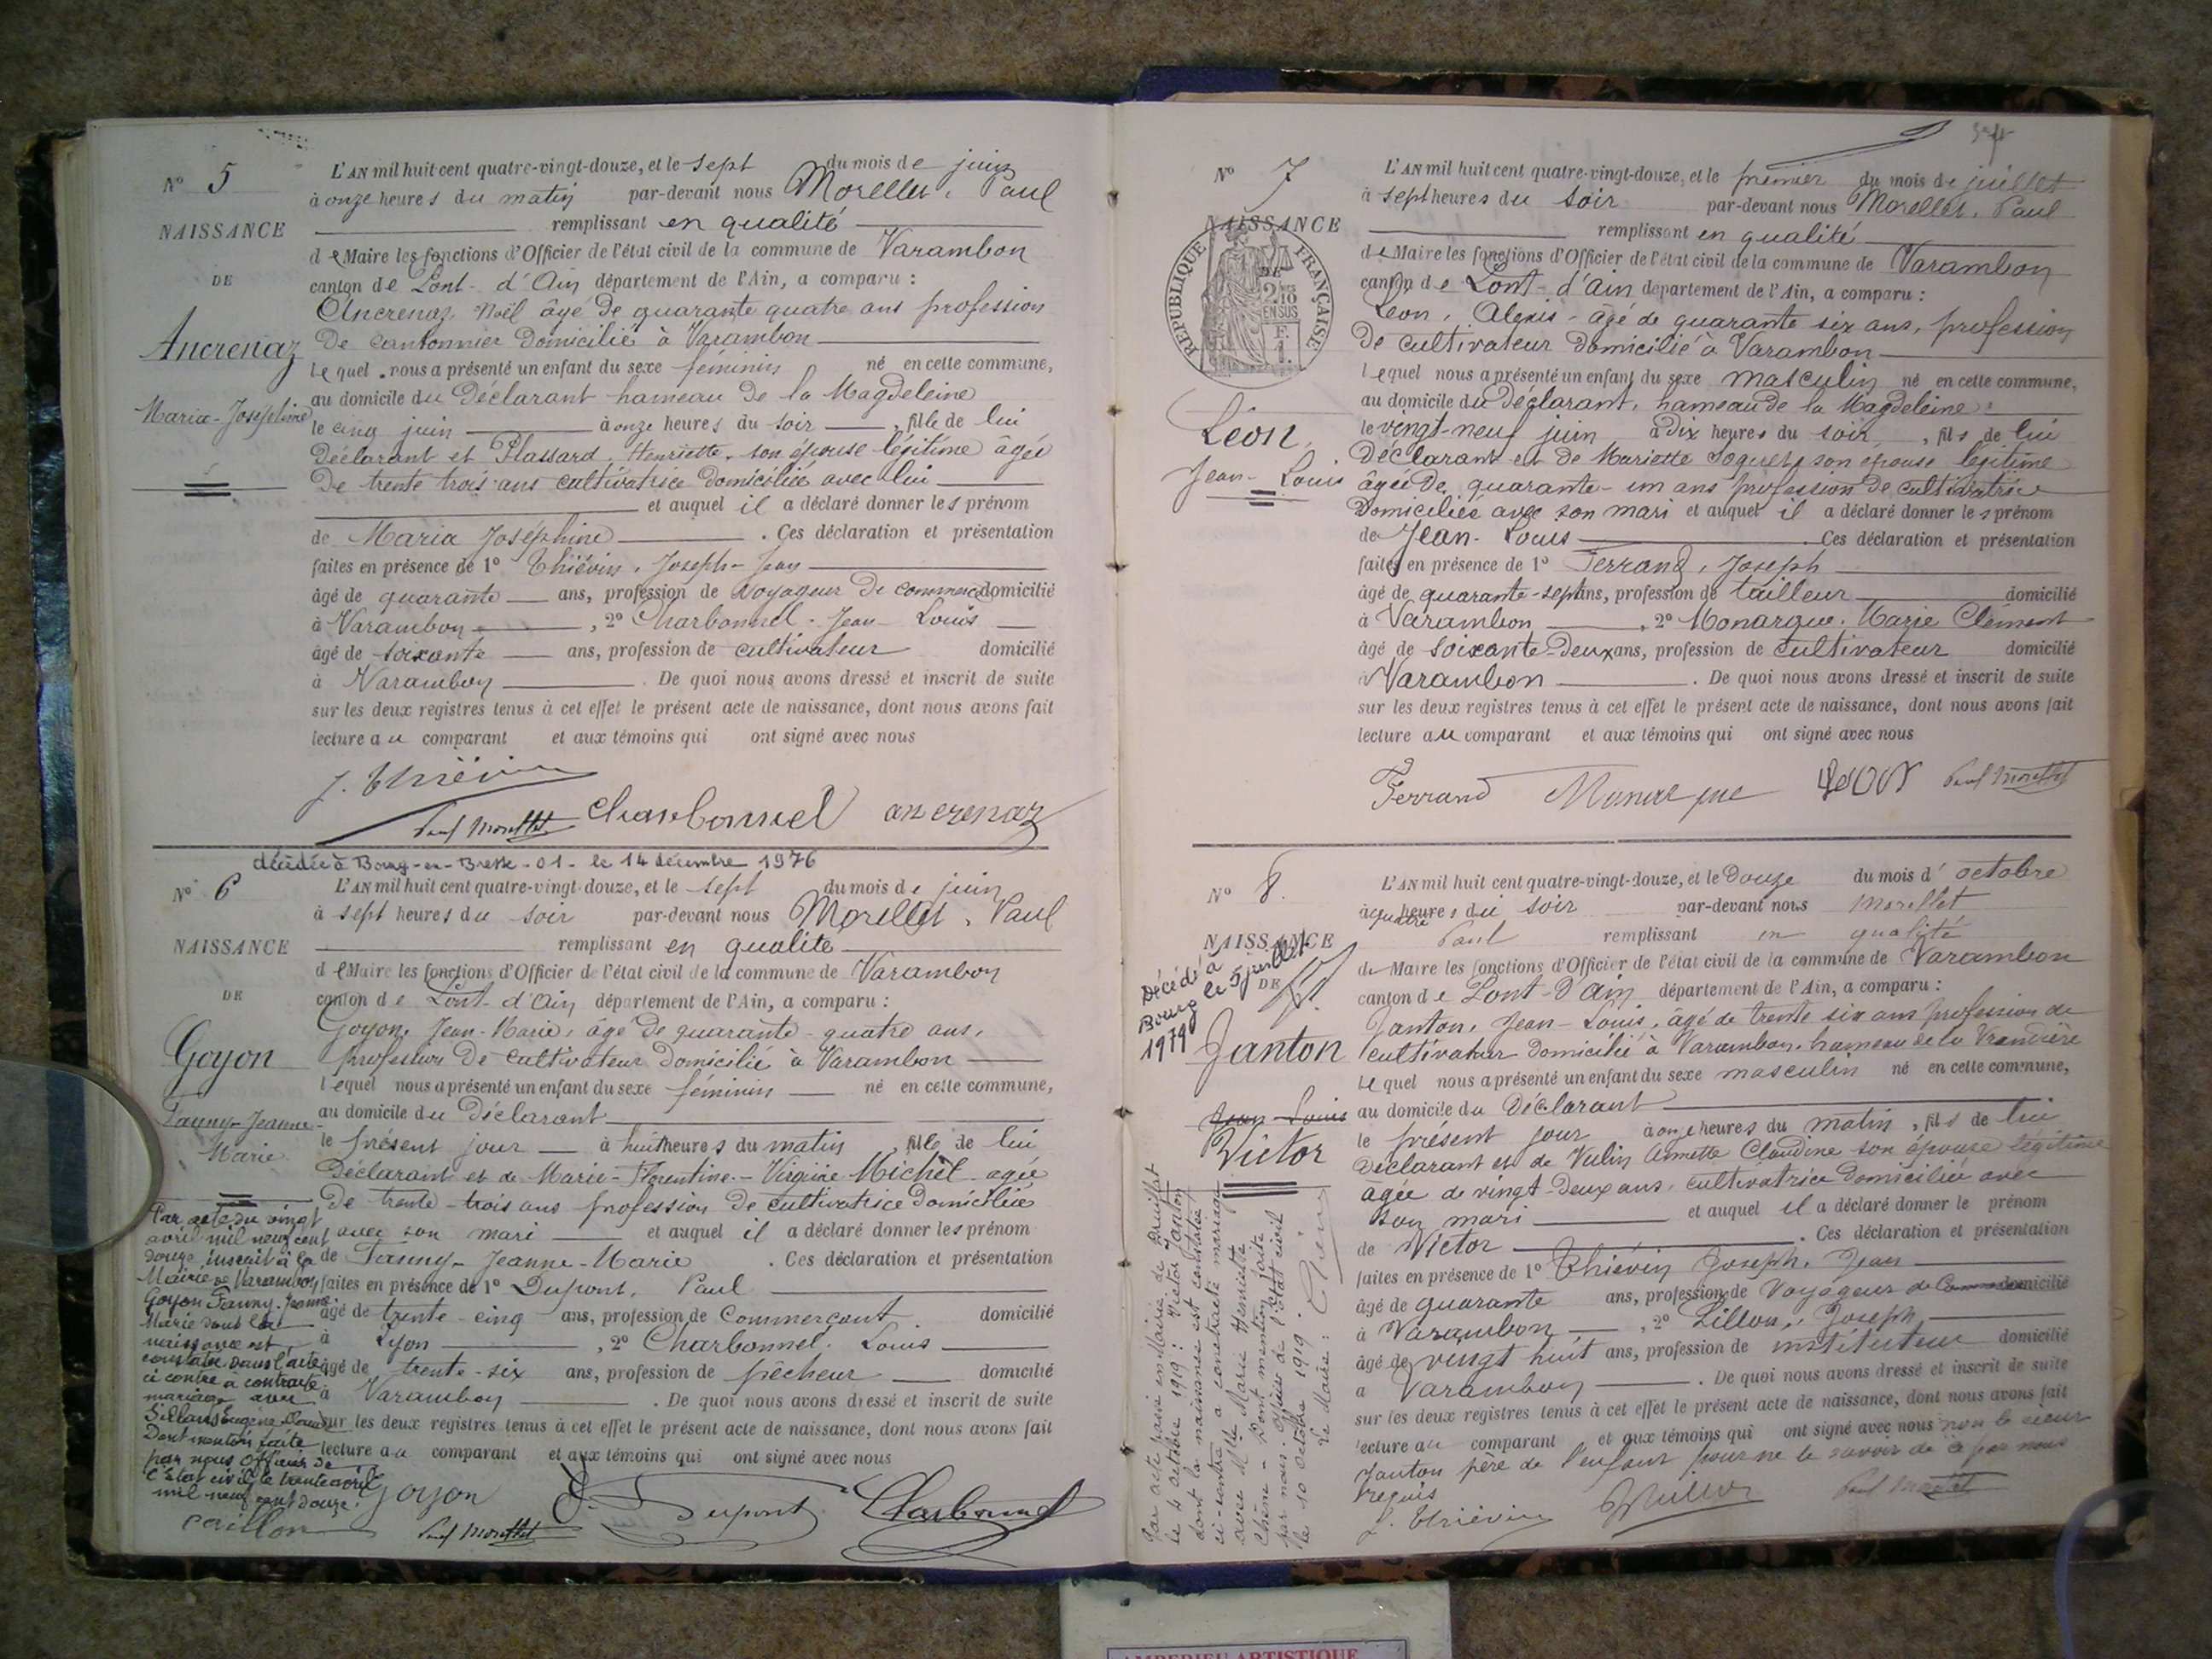 N° 5
NAISSANCE
DE
Ancrenaz
Maria-Joséphine
L'AN mil huit cent quatre-vingt-douze, et le sept du mois de juin
à onze heures du matin par-devant nous Morellet, Paul
remplissant en qualité
de Maire les fonctions d'Officier de l'état civil de la commune de Varambon
canton de Pont-d'Ain département de l'Ain, a comparu :
Ancrenaz, Noël âgé de quarante quatre ans profession
de cantonnier domicilié à Varambon
lequel nous a présenté un enfant du sexe féminin né en cette commune,
au domicile du Déclarant hameau de la Magdeleine
le cinq juin à onze heures du soir, fille de lui
Déclarant et Plassard, Henriette, son épouse légitime âgée
De trente trois ans cultivatrice domiciliée avec lui
et auquel il a déclaré donner les prénom
de Maria Joséphine. Ces déclaration et présentation
faites en présence de 1° Thiévin, Joseph-Jean
âgé de quarante ans, profession de voyageur de commerce domicilié
à Varambon, 2° Charbonnel, Jean Louis
âgé de soixante ans, profession de cultivateur domicilié
à Varambon. De quoi nous avons dressé et inscrit de suite
sur les deux registres tenus à cet effet le présent acte de naissance, dont nous avons fait
lecture au comparant et aux témoins qui ont signé avec nous
J. Thiévin
Paul Morellet Charbonnel ancrenaz
décédée à Bourg-en-Bresse-01- le 14 décembre 1976
N° 6
NAISSANCE
DE
Goyon
Fanny-Jeanne-
Marie
L'AN mil huit cent quatre-vingt-douze, et le sept du mois de juin
à sept heures du soir par-devant nous Morellet, Paul
remplissant en qualité
de Maire les fonctions d'Officier de l'état civil de la commune de Varambon
canton de Pont-d'Ain département de l'Ain, a comparu :
Goyon, Jean-Marie, âgé de quarante-quatre ans,
profession de cultivateur domicilié à Varambon
lequel nous a présenté un enfant du sexe féminin né en cette commune,
au domicile du Déclarant
le présent jour à huit heures du matin, fille de lui
Déclarant et de Marie-Florentine-Virginie Michel agée
De trente-trois ans profession de cultivatrice domiciliée
avec son mari et auquel il a déclaré donner les prénom
de Fanny-Jeanne-Marie. Ces déclaration et présentation
faites en présence de 1° Dupont, Paul
âgé de trente-cinq ans, profession de Commerçant domicilié
à Lyon, 2° Charbonnel, Louis
âgé de trente-six ans, profession de pêcheur domicilié
à Varambon. De quoi nous avons dressé et inscrit de suite
sur les deux registres tenus à cet effet le présent acte de naissance, dont nous avons fait
lecture au comparant et aux témoins qui ont signé avec nous
Goyon Dupont Charbonnel
Paul Morellet
Par acte du vingt
avril mil neuf cent
douze, inscrit à la
Mairie de Varambon
Goyon Fanny-Jeanne
Marie dont la
naissance est
constatée dans l'acte
ci contre a contracté
mariage avec
Eugène
Dont mention faite
par nous Officier de
l'état civil, le trente avril
mil neuf cent douze.
N° 7
NAISSANCE
DE
RÉPUBLIQUE FRANÇAISE
2/10
EN SUS
Léon,
Jean-Louis
L'AN mil huit cent quatre-vingt-douze, et le premier du mois de juillet
à sept heures du soir par-devant nous Morellet, Paul
remplissant en qualité
de Maire les fonctions d'Officier de l'état civil de la commune de Varambon
canton de Pont-d'Ain département de l'Ain, a comparu :
Léon, Alexis-âgé de quarante six ans, profession
de cultivateur domicilié à Varambon
lequel nous a présenté un enfant du sexe masculin né en cette commune,
au domicile du Déclarant, hameau de la Magdeleine
le vingt-neuf juin à dix heures du soir, fils de lui
Déclarant et de Mariette Joguet, son épouse légitime
âgée de quarante-un ans profession de cultivatrice
Domiciliée avec son mari et auquel il a déclaré donner les prénom
de Jean-Louis. Ces déclaration et présentation
faites en présence de 1° Ferrand, Joseph
âgé de quarante-sept ans, profession de tailleur domicilié
à Varambon, 2° Monarque, Marie Clément
âgé de soixante-deux ans, profession de cultivateur domicilié
à Varambon. De quoi nous avons dressé et inscrit de suite
sur les deux registres tenus à cet effet le présent acte de naissance, dont nous avons fait
lecture au comparant et aux témoins qui ont signé avec nous
Ferrand Monarque Léon Paul Morellet
N° 8.
NAISSANCE
DE
Décédé à
Bourg le 5 juillet
1979
Janton
Jean-Louis
Victor
L'AN mil huit cent quatre-vingt-douze, et le Douze du mois d'octobre
à quatre heures du soir par-devant nous Morellet
Paul remplissant en qualité
de Maire les fonctions d'Officier de l'état civil de la commune de Varambon
canton de Pont-d'Ain département de l'Ain, a comparu :
Janton, Jean-Louis, âgé de trente six ans profession de
cultivateur domicilié à Varambon, hameau de la
lequel nous a présenté un enfant du sexe masculin né en cette commune,
au domicile du Déclarant
le présent jour à onze heures du matin, fils de lui
Déclarant et de Vulin Annette Claudine son épouse légitime
âgée de vingt-deux ans, cultivatrice domiciliée avec
son mari et auquel il a déclaré donner le prénom
de Victor. Ces déclaration et présentation
faites en présence de 1° Thiévin Joseph, Jean
âgé de quarante ans, profession de Voyageur de Commerce domicilié
à Varambon, 2° Pillon, Joseph
âgé de vingt huit ans, profession de instituteur domicilié
à Varambon. De quoi nous avons dressé et inscrit de suite
sur les deux registres tenus à cet effet le présent acte de naissance, dont nous avons fait
lecture au comparant et aux témoins qui ont signé avec nous non le sieur
Janton père de l'enfant pour ne le savoir de ce par nous
requis
J. Thiévin Paul Morellet
Par acte passé en Mairie de Druillat
le 4 octobre 1919 : Victor Janton
dont la naissance est constatée
ci-contre, a contracté mariage
avec Mlle Marie Henriette
Chêne - Dont mention faite
par nous officier de l'état civil
le 10 octobre 1919.
Le Maire :